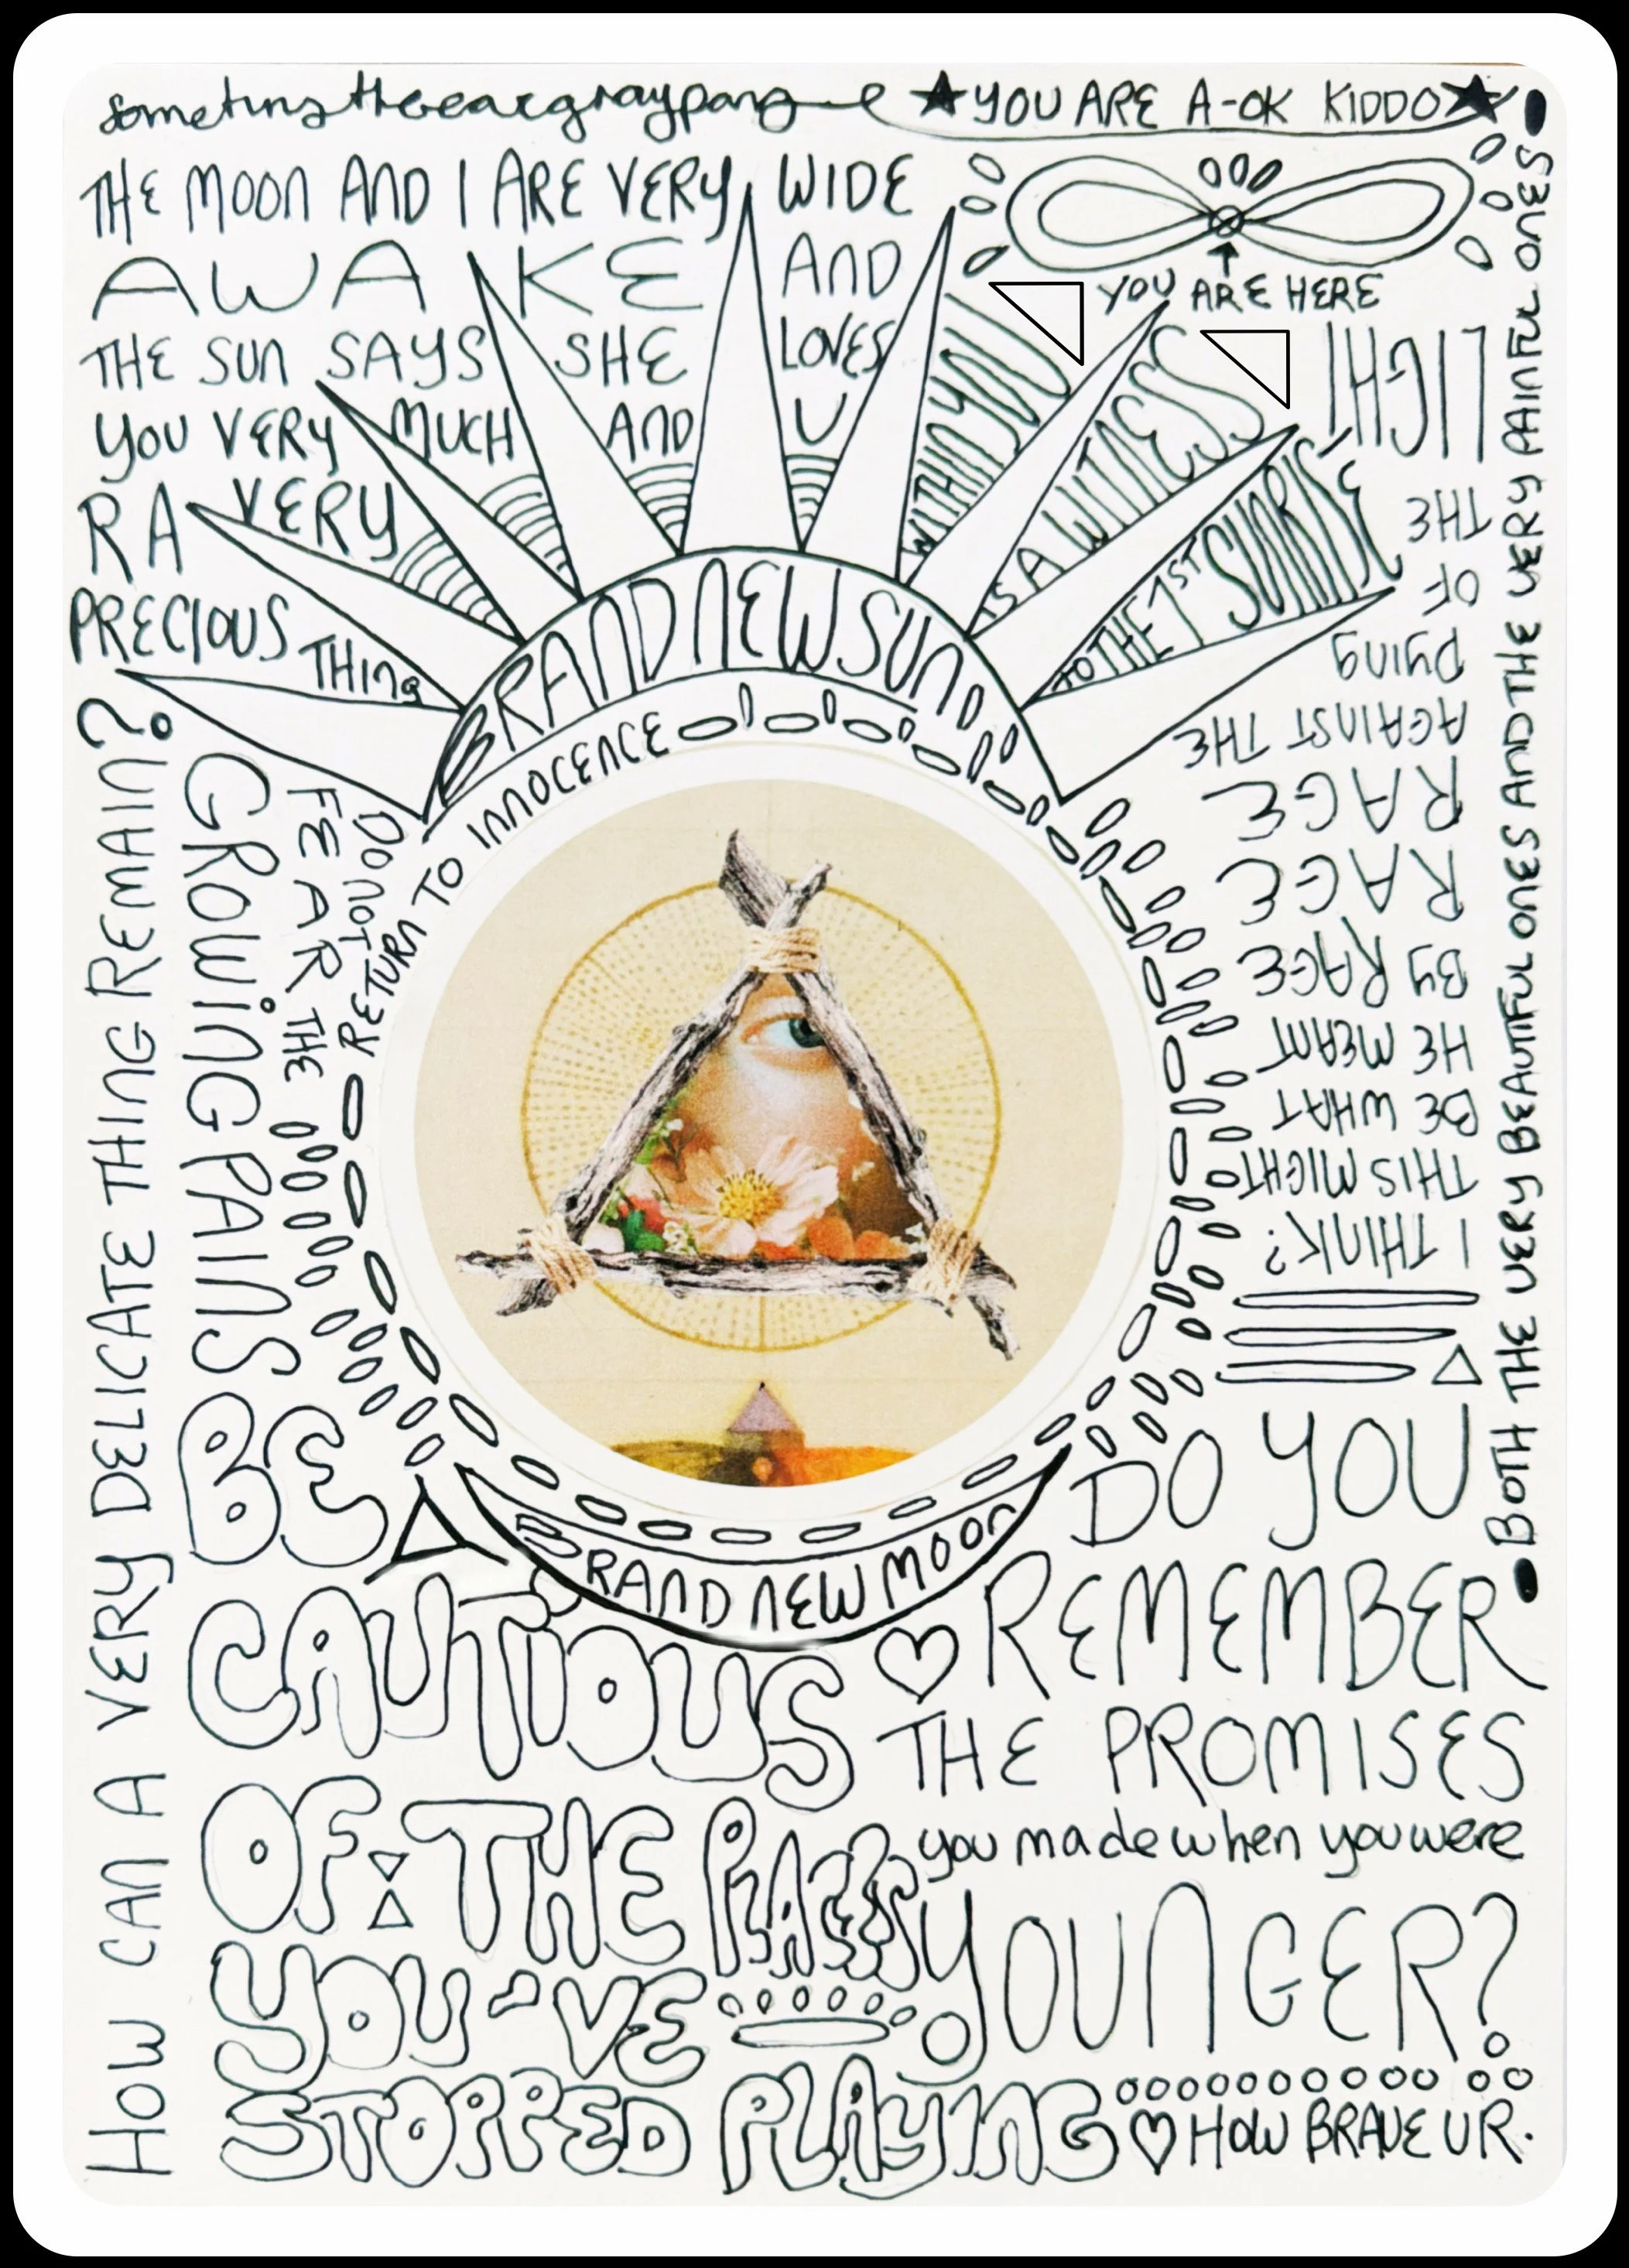 ★YOU ARE A-OK KIDDO★
THE MOON AND I ARE VERY WIDE
AWAKE AND
THE SUN SAYS SHE LOVES
YOU VERY MUCH AND U
R A VERY
PRECIOUS THING
YOU ARE HERE
WITHIN YOU
IS A WITNESS
TO THE 1ST SUNRISE
BRAND NEW SUN
RETURN TO INNOCENCE
DO NOT
FEAR THE
GROWING PAINS
HOW CAN A VERY DELICATE THING REMAIN?
I THINK?
THIS MIGHT
BE WHAT
HE MEANT
BY RAGE
RAGE
RAGE
AGAINST THE
DYING
OF
THE
LIGHT
BOTH THE VERY BEAUTIFUL ONES AND THE VERY PAINFUL ONES
BRAND NEW MOON
BE
CAUTIOUS
OF THE PLACES
YOU'VE
STOPPED PLAYING
DO YOU
REMEMBER
THE PROMISES
you made when you were
YOUNGER?
HOW BRAVE U R.